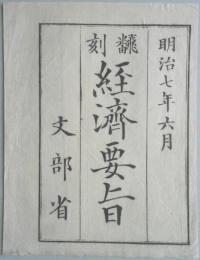 明治七年六月
翻刻
經濟要旨
文部省